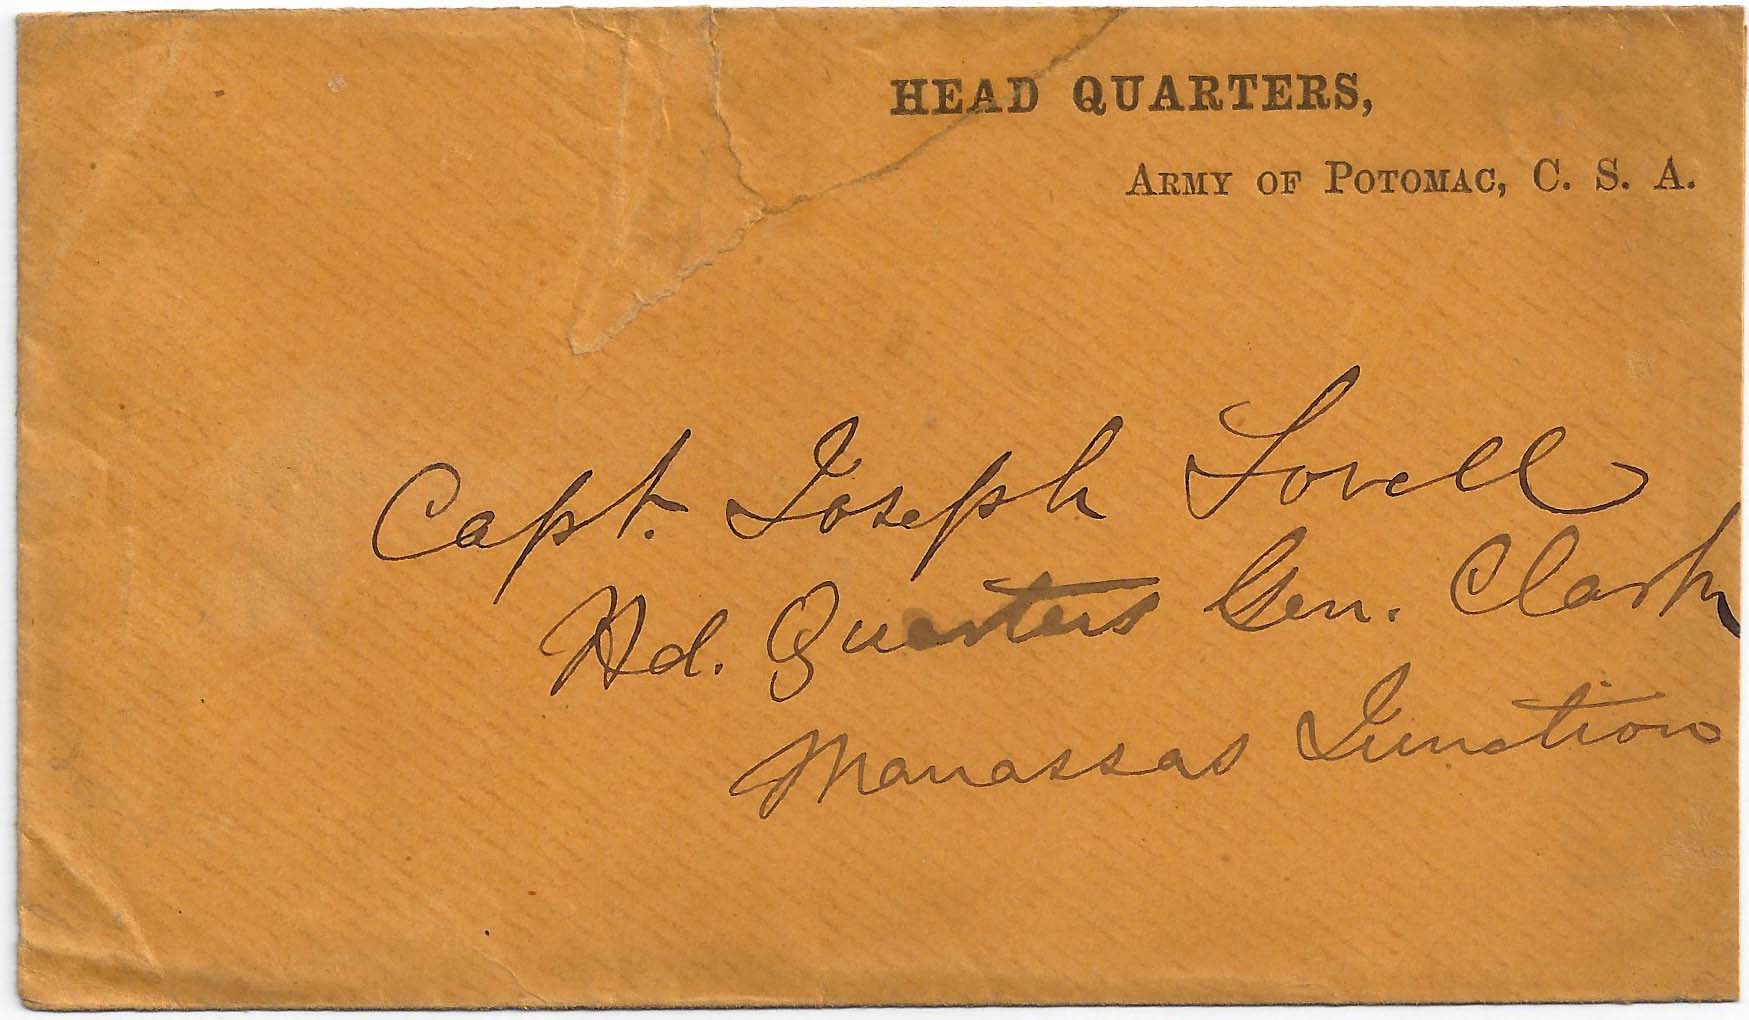 HEAD QUARTERS,
ARMY OF POTOMAC, C. S. A.
Capt. Joseph Lovell
Hd. Quarters Gen. Clark
Manassas Junction